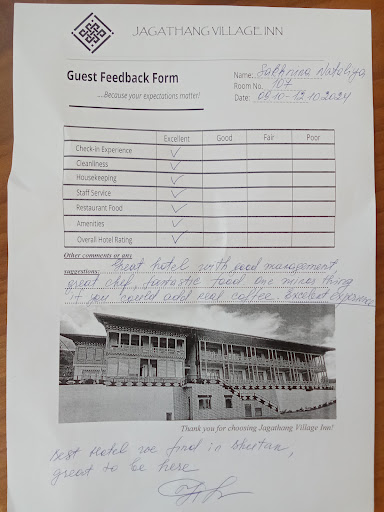 JAGATHANG VILLAGE INN
Guest Feedback Form
....Because your expectations matter!
Name: Sakhnina Nataliya
Room No. 107
Date: 09.10-12.10.2024
Excellent Good Fair Poor
Check-in Experience
Cleanliness
Housekeeping
Staff Service
Restaurant Food
Amenities
Overall Hotel Rating
Other comments or any
suggestions: Great hotel with good management
great chef, fantastic food one minus thing
if you could add real coffee. Excellent experience
Thank you for choosing Jagathang Village Inn!
Best Hotel we find in Bhutan,
great to be here